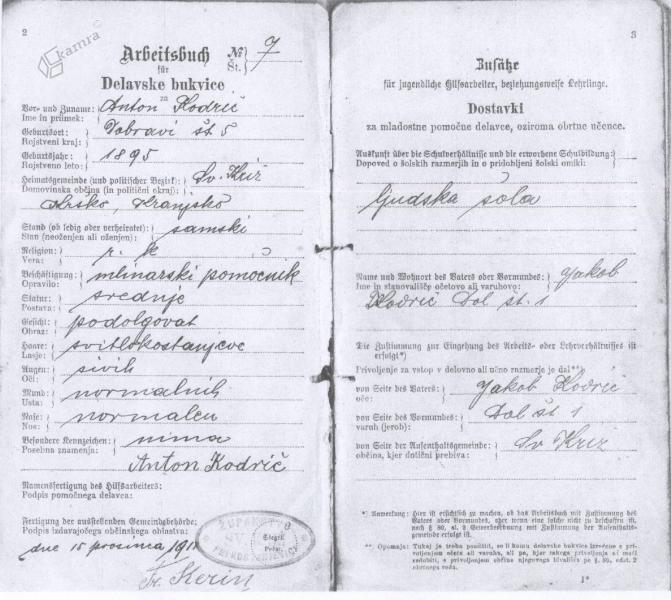 2
kamra
Arbeitsbuch
für
Delavske bukvice
za
№
Št.
7
Vor- und Zuname:
Ime in priimek:
Anton Kodrič
Geburtsort:
Rojstveni kraj:
Dobravi št. 5
Geburtsjahr:
Rojstveno leto:
1895
Heimatsgemeinde (und politischer Bezirk):
Domovinska občina (in politični okraj):
Sv. Križ
Krško, Kranjsko
Stand (ob ledig oder verheiratet):
Stan (neoženjen ali oženjen):
samski
Religion:
Vera:
r. k
Beschäftigung:
Opravilo:
mlinarski pomočnik
Statur:
Postava:
srednje
Gesicht:
Obraz:
podolgovat
Haare:
Lasje:
svitlokostanjeve
Augen:
Oči:
sivih
Mund:
Usta:
normalnih
Nase:
Nos:
normalen
Besondere Kennzeichen:
Posebna znamenja:
nima
Anton Kodrič
Namensfertigung des Hilfsarbeiters:
Podpis pomočnega delavca:
Fertigung der ausstellenden Gemeindebehörde:
Podpis izdavajočega občinskega oblastva:
dne 15 prosinca 191
ŽUPANSTVO
Fr. Kerin
3
Zusätze
für jugendliche Hilfsarbeiter, beziehungsweise Lehrlinge.
Dostavki
za mladostne pomočne delavce, oziroma obrtne učence.
Auskunft über die Schulverhältnisse und die erworbene Schulbildung:
Dopoved o šolskih razmerjih in o pridobljeni šolski omiki:
ljudska šola
Name und Wohnort des Vaters oder Vormundes:
Ime in stanovališče očetovo ali varuhovo:
Jakob
Kodrič Dol št. 1
Die Zustimmung zur Eingehung des Arbeits- oder Lehrverhältnisses ist
erfolgt*)
Privoljenje za vstop v delovno ali učno razmerje je dal**)
von Seite des Vaters:
oče:
Jakob Kodrič
von Seite des Vormundes:
varuh (jerob):
Dol št 1
von Seite der Aufenthaltsgemeinde:
občina, kjer dotični prebiva:
Sv Križ
*) Anmerkung: Hier ist ersichtlich zu machen, ob das Arbeitsbuch mit Zustimmung des
Vaters oder Vormundes, oder wenn eine solche nicht zu beschaffen ist,
nach § 80, al. 2 Gewerbeordnung mit Zustimmung der Aufenthalts-
gemeinde erfolgt ist.
**) Opomnja: Tukaj je treba pojasniti, so li komu delavske bukvice izročene s pri-
voljenjem očeta ali varuha, ali pa, kjer takega privoljenja ni moči
zadobiti, s privoljenjem občine njegovega bivališča po § 80, odst. 2
obrtnega reda.
1*